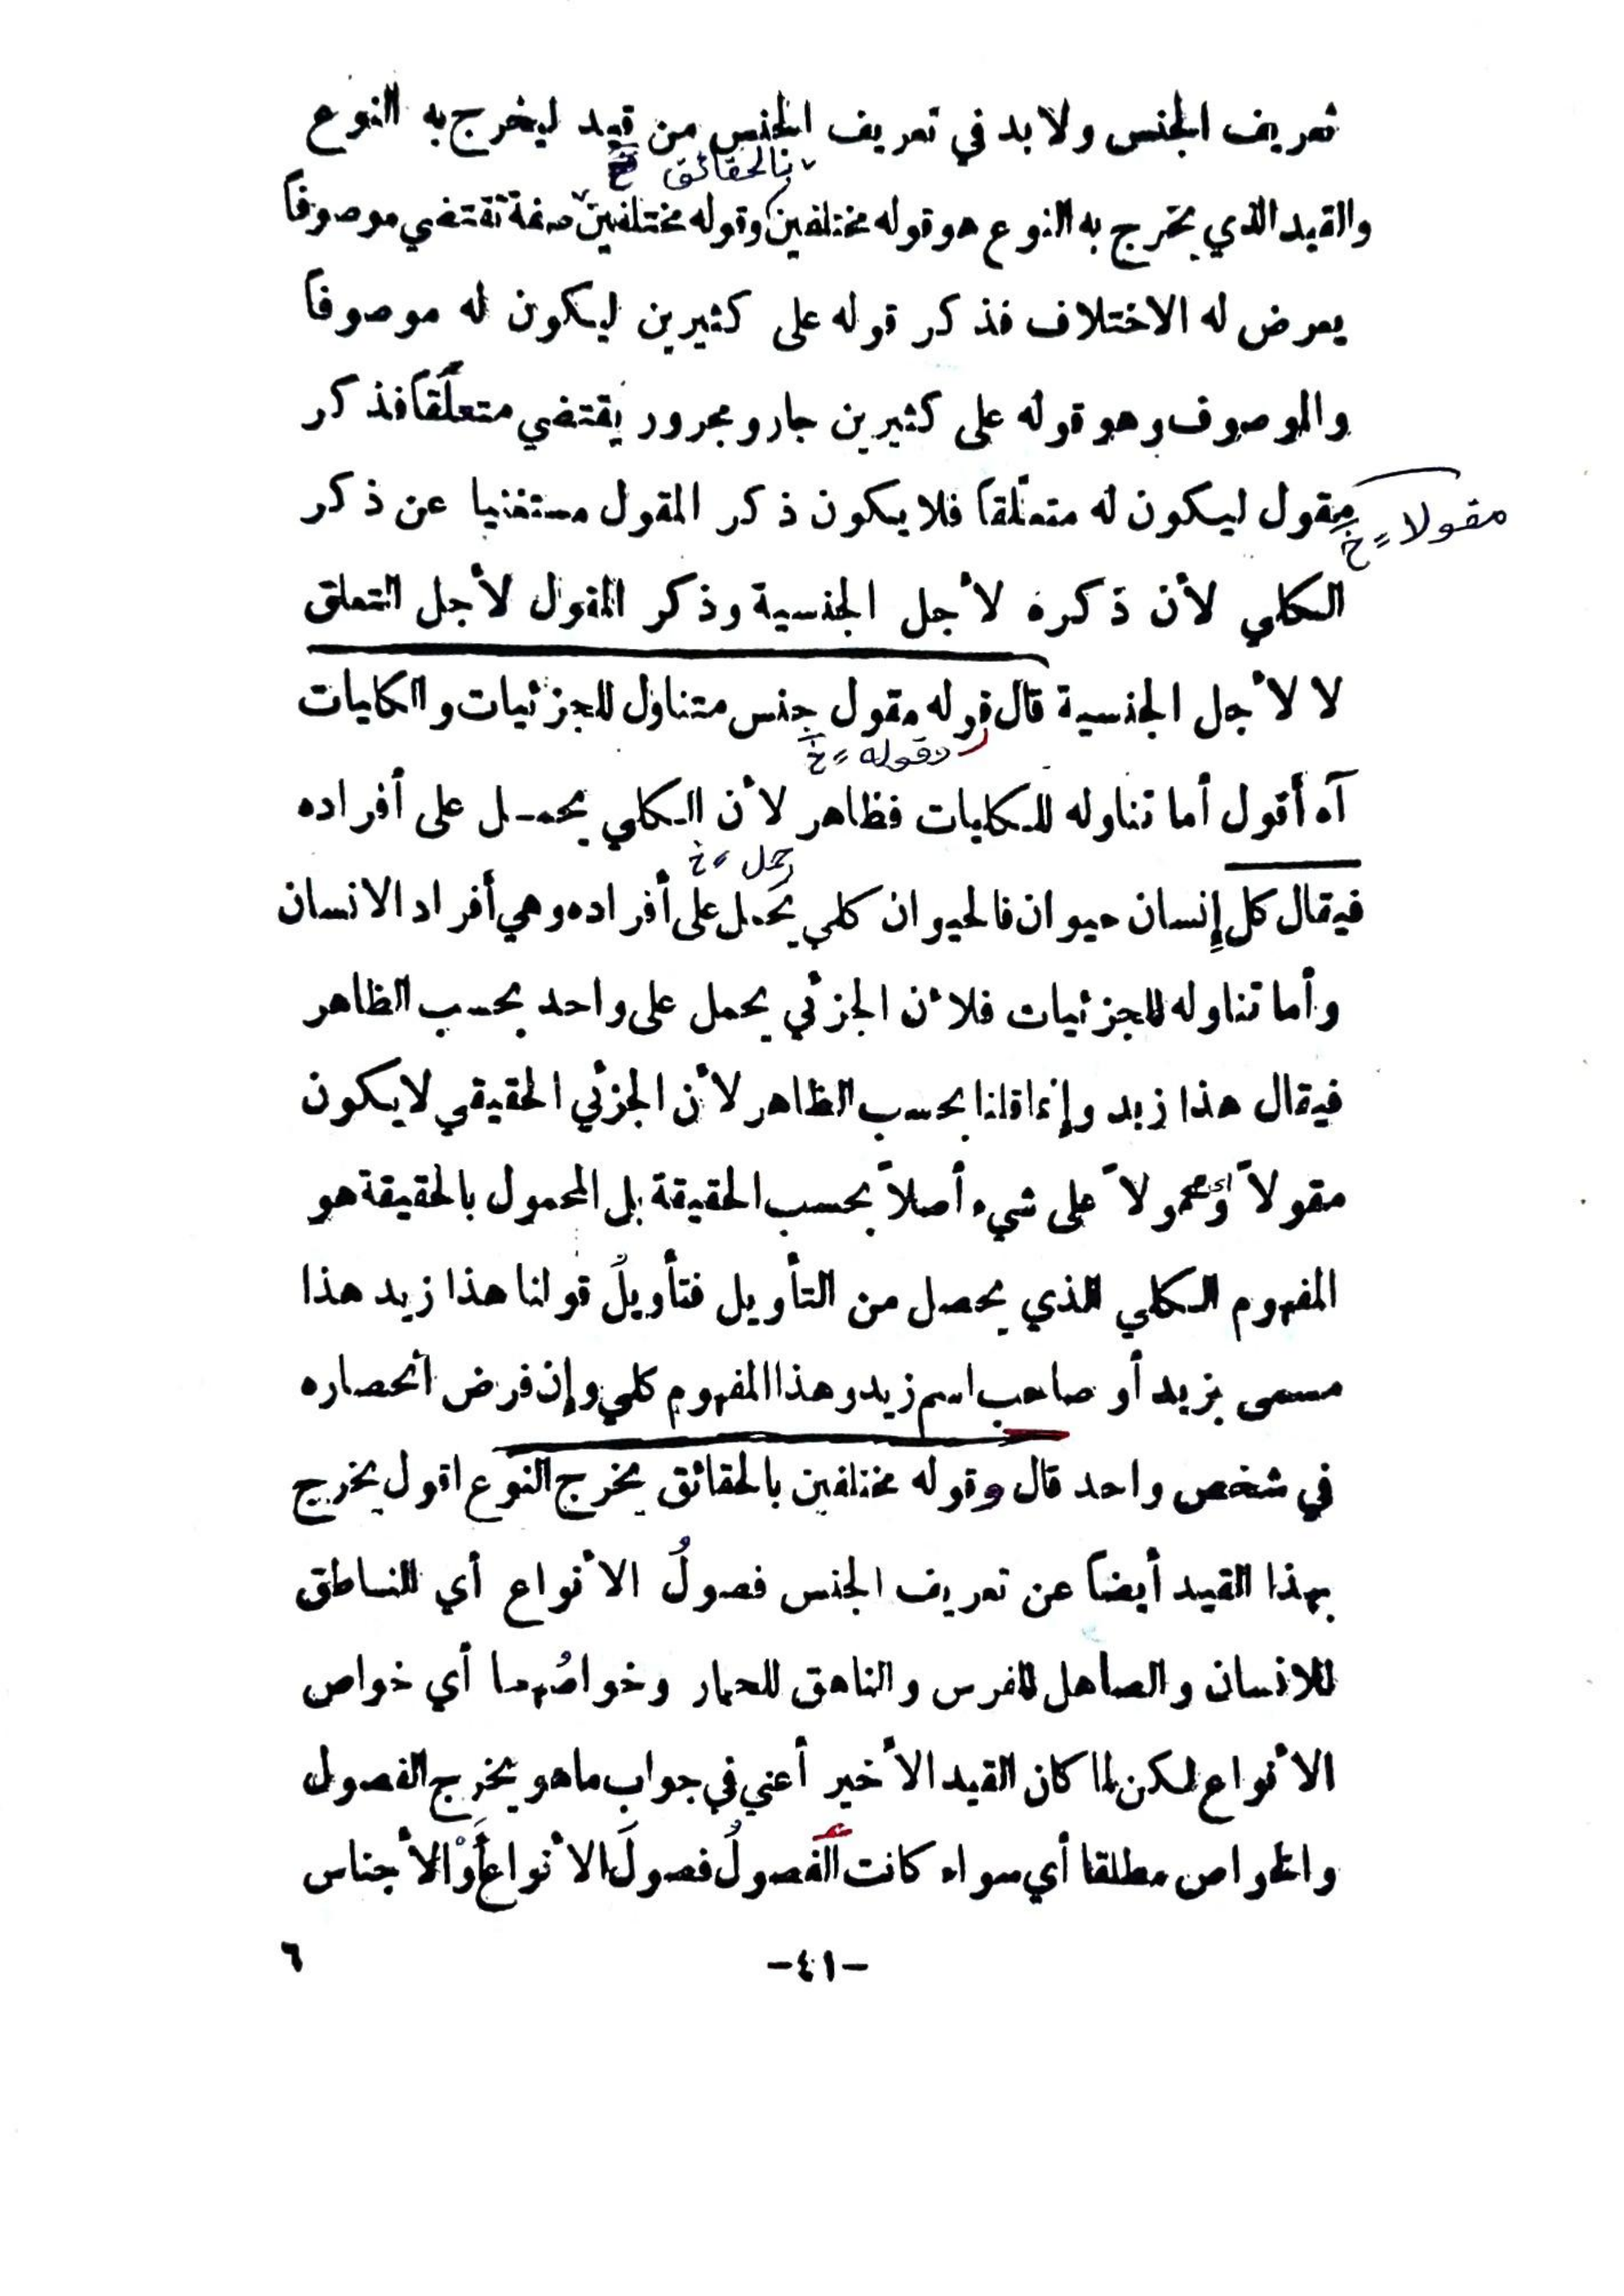 تعريف الجنس ولا بد في تعريف الجنس من قيد ليخرج به النوع
بالحقائق خ
والقيد الذي يخرج به النوع هو قوله مختلفين وقوله مختلفين صفة تقتضي موصوفاً
يعرض له الاختلاف فذكر قوله على كثيرين ليكون له موصوفاً
والموصوف وهو قوله على كثيرين جار ومجرور يقتضي متعلَّقاً فذكر
مقول ليكون له متعلّقاً فلا يكون ذكر المقول مستغنيا عن ذكر
مقولا خ
الكلي لأن ذكره لأجل الجنسية وذكر المقول لأجل التعلق
لا لأجل الجنسية قال قوله مقول جنس متناول للجزئيات والكليات
وقوله خ
آه أقول أما تناوله للكليات فظاهر لأن الكلي يحمل على أفراده
حمل خ
فيقال كل إنسان حيوان فالحيوان كلي يحمل على أفراده وهي أفراد الانسان
وأما تناوله للجزئيات فلأن الجزئي يحمل على واحد بحسب الظاهر
فيقال هذا زيد وإنما قلنا بحسب الظاهر لأن الجزئي الحقيقي لا يكون
مقولاً ومحمولاً على شيء أصلاً بحسب الحقيقة بل المحمول بالحقيقة هو
المفهوم الكلي الذي يحصل من التأويل فتأويلُ قولنا هذا زيد هذا
مسمى بزيد أو صاحب اسم زيد وهذا المفهوم كلي وإن فرض انحصاره
في شخص واحد قال وقوله مختلفين بالحقائق يخرج النوع اقول يخرج
بهذا القيد أيضاً عن تعريف الجنس فصولُ الأنواع أي الناطق
للانسان والصاهل للفرس والناهق للحمار وخواصُها أي خواص
الأنواع لكن لما كان القيد الأخير أعني في جواب ما هو يخرج الفصول
والخواص مطلقا أي سواء كانت الفصولُ فصولَ الأنواع أَوْ الأجناس
-٤١-
٦